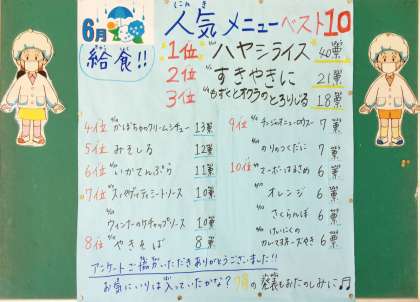 6月
給食!!
人気メニューベスト10
1位 ハヤシライス 40票
2位 すきやきに 21票
3位 もずくとオクラのとろりじる 18票
4位 かぼちゃのクリームシチュー 13票
5位 みそしる 12票
6位 いかてんぷら 11票
7位 スパゲティミートソース 10票
ウィンナーのケチャップソース 10票
8位 やきそば 8票
9位 7票
のりのつくだに 7票
10位 マーボーはるさめ 6票
オレンジ 6票
さくらんぼ 6票
6票
アンケートご協力いただきありがとうございました!!
お気にいりは入っていたかな?7月の発表もおたのしみに♬